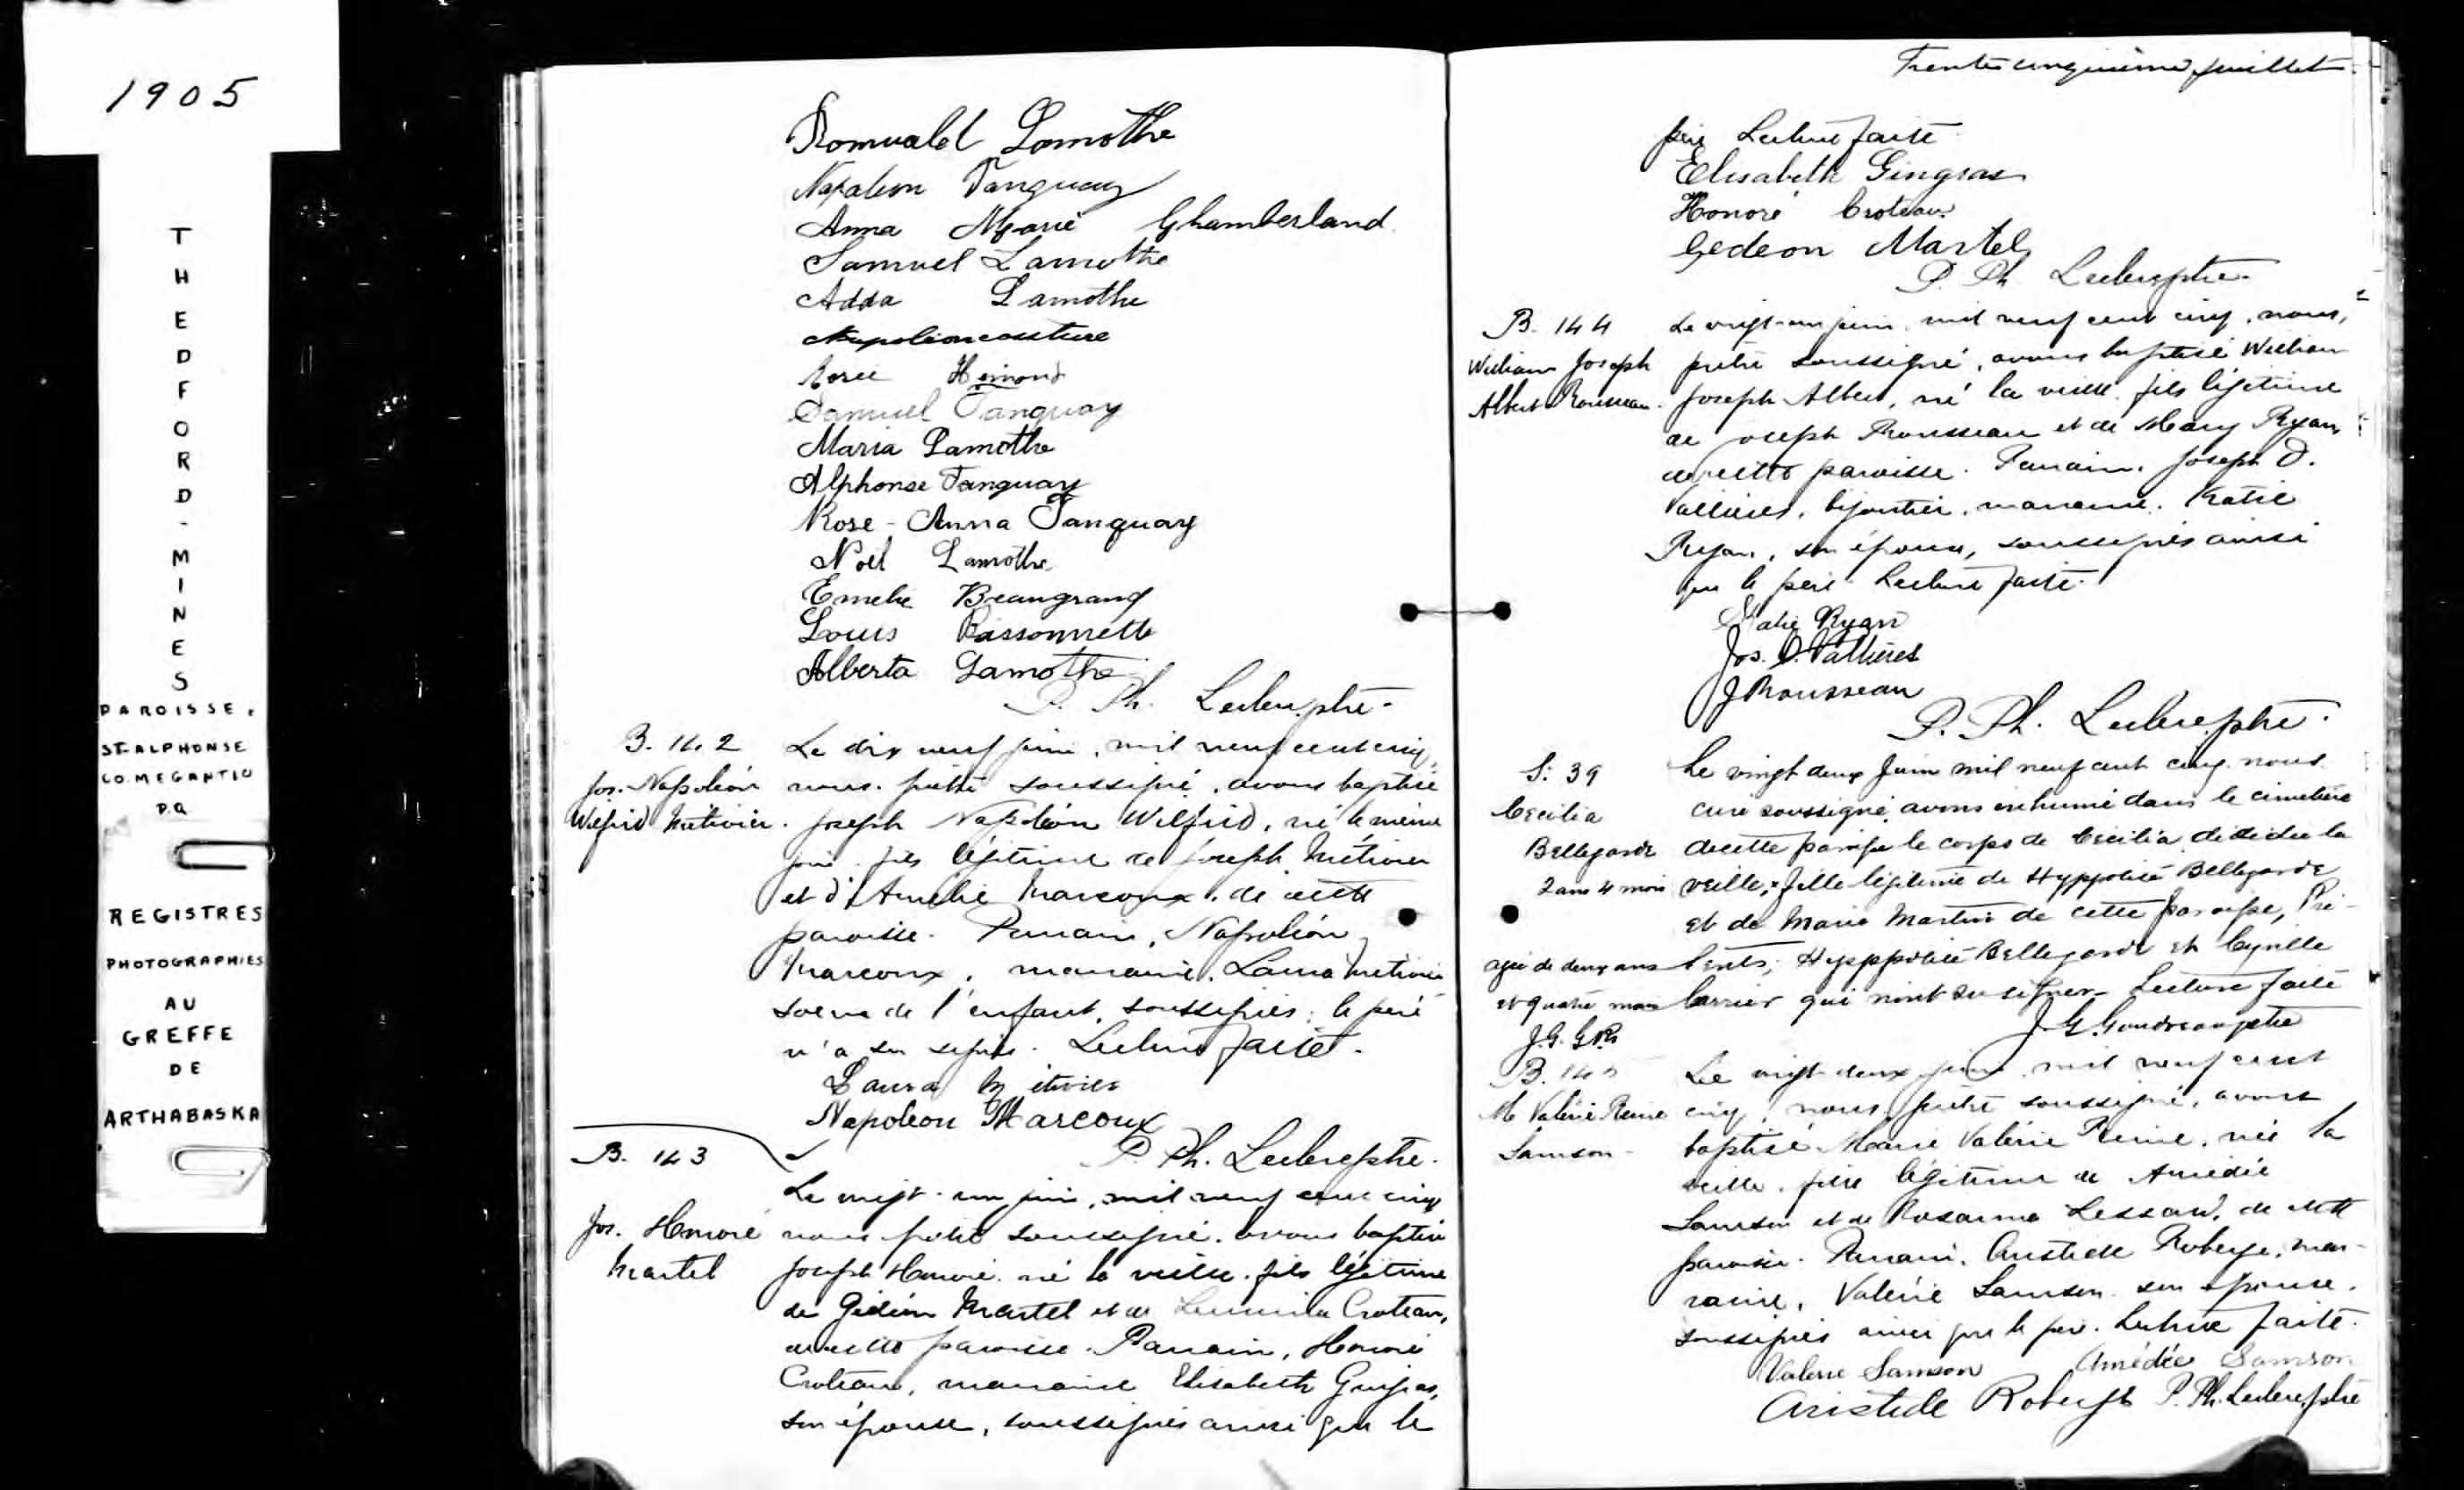 1905
THEDFORD-MINES
PAROISSE.
ST-ALPHONSE
CO. MEGANTIC
P.Q.
REGISTRES
PHOTOGRAPHIES
AU
GREFFE
DE
ARTHABASKA
Romuald Lamothe
Napoleon Tanguay
Anna Marie Chamberland
Samuel Lamothe
Adda Lamothe
Napoleon couture
Hemond
Samuel Tanguay
Maria Lamothe
Alphonse Tanguay
Rose-Anna Tanguay
Noël Lamothe
Beaugrand
Louis Bissonnette
Alberta Lamothe
P. Ph. Leclerc, ptre.
B. 142
Jos. Napoléon
Wilfrid Métivier.
Le dix neuf juin, mil neuf cent cinq,
nous, prêtre soussigné, avons baptisé
Joseph Napoléon Wilfrid, né le même
jour, fils légitime de Joseph Métivier
et d'Amélie Marcoux, de cette
paroisse. Parrain, Napoléon
Marcoux, marraine, Laura Métivier
soeur de l'enfant, soussignés; le père
n'a su signer. Lecture faite.
Laura Métivier
Napoleon Marcoux
P. Ph. Leclerc, ptre.
B. 143
Jos. Honoré
Martel
Le vingt-un juin, mil neuf cent cinq
nous prêtre soussigné, avons baptisé
Joseph Honoré, né la veille, fils légitime
de Gédéon Martel et de Croteau,
de cette paroisse. Parrain, Honoré
Croteau, marraine Elisabeth Gingras,
son épouse, soussignés ainsi que le
Trente cinquième feuillet.
père Lecture faite.
Elisabeth Gingras
Honoré Croteau
Gedeon Martel
P. Ph. Leclerc, ptre.
B. 144
William Joseph
Albert Rousseau.
Le vingt-un juin, mil neuf cent cinq, nous,
prêtre soussigné, avons baptisé William
Joseph Albert, né la veille, fils légitime
de Joseph Rousseau et de Mary Ryan
de cette paroisse. Parrain, Joseph O.
Vallières, bijoutier, marraine, Katie
Ryan, son épouse, soussignés ainsi
que le père. Lecture faite.
Katie Ryan
Jos. O. Vallières
J Rousseau
P. Ph. Leclerc, ptre.
S. 39
Cecilia
Bellegarde
2 ans 4 mois
Le vingt deux Juin mil neuf cent cinq nous
curé soussigné avons inhumé dans le cimetière
de cette paroisse le corps de Cecilia décédée la
veille, fille légitime de Hyppolite Bellegarde
et de Marie Martin de cette paroisse, Pré-
sents; Hypppolite Bellegarde et Cyrille
Carrier qui n'ont su signer. Lecture faite
agée de deux ans
et quatre mois
J. G. Goudreau ptre
B. 145
M. Valérie Reine
Samson
Le vingt-deux juin, mil neuf cent
cinq, nous, prêtre soussigné, avons
baptisé Marie Valérie Reine, née la
veille, fille légitime de Amédée
Samson et de Rosanna Lessard, de cette
paroisse. Parrain, Aristide Roberge, mar-
raine, Valérie Samson son épouse,
soussignés ainsi que le père. Lecture faite.
Valerie Samson Amédée Samson
Aristide Roberge P. Ph. Leclerc, ptre